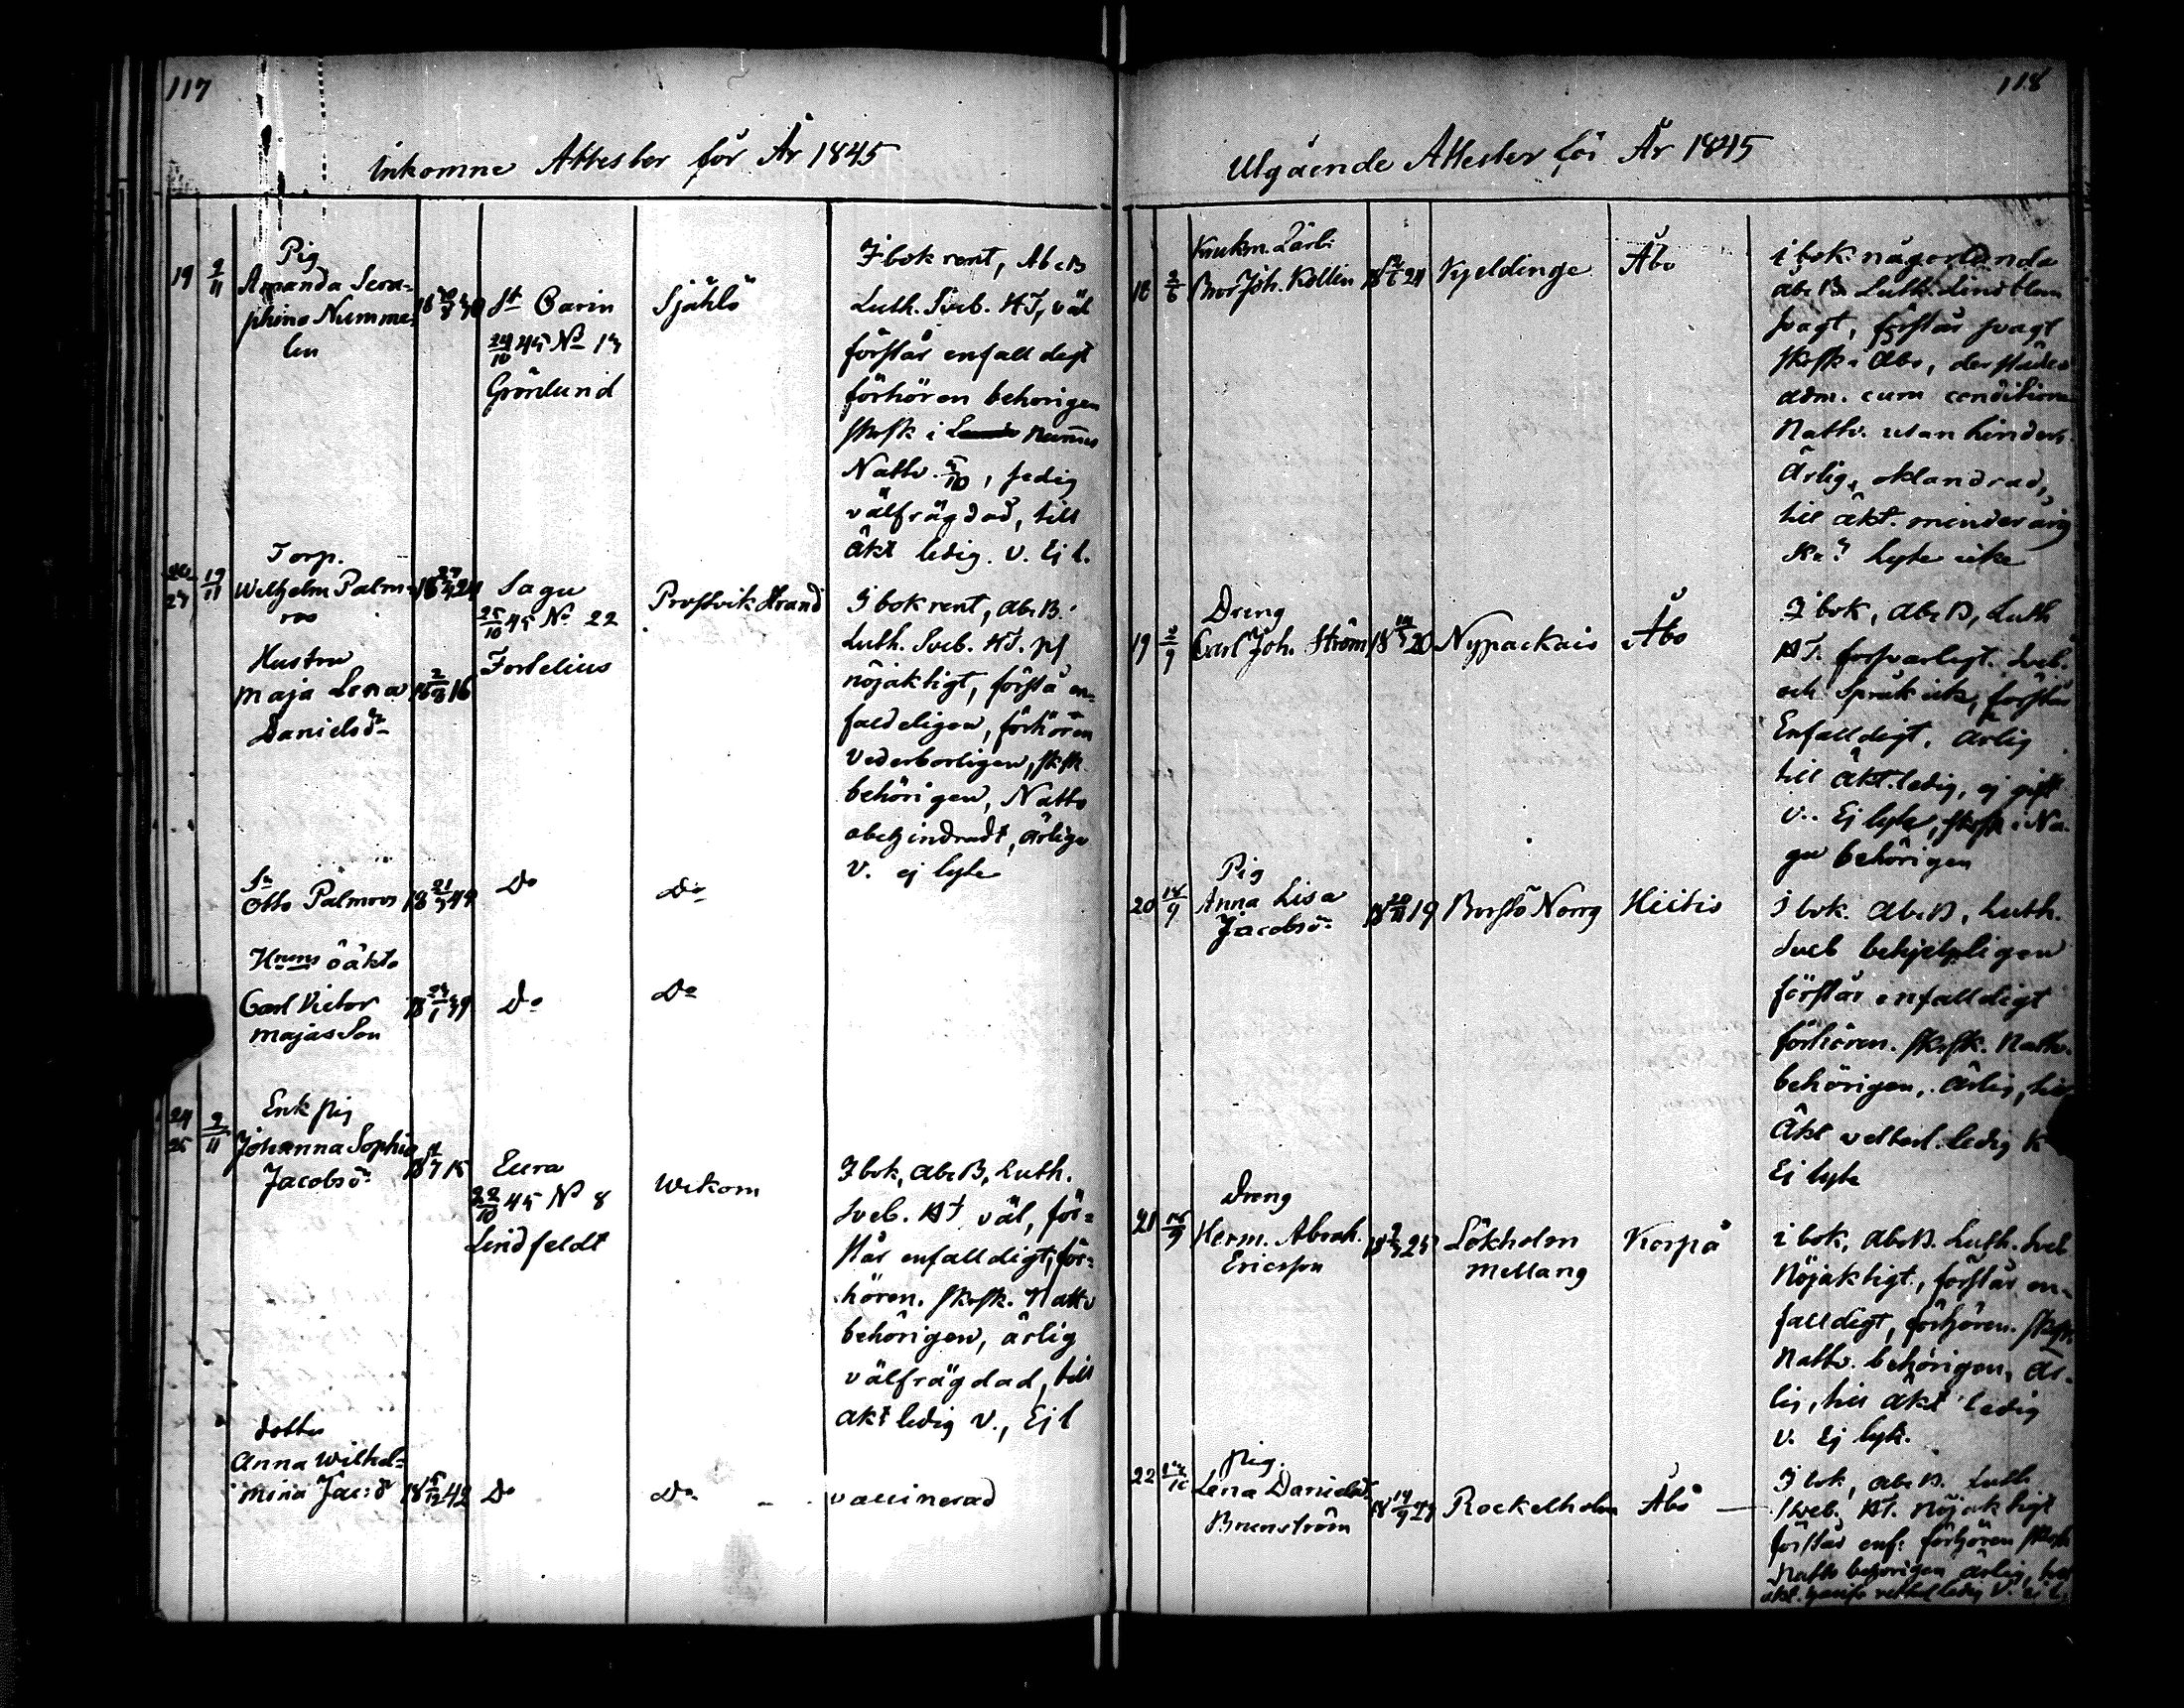 117
Inkomne Attester för År 1845
19 2/11
Pig
Amanda Sera-
phina Numme-
lin
St Carin
24/10 45 No 13
Grönlund
Själlö
I bok rent, Abc B
Luth. Sveb. HT, väl
förstår enfalldigt
förhören behörigen
skrsk i Nummis
Nattv. 5/10, fredig
välfrägdad, till
Äkt ledig. V. Ej l.
19/11
Torp.
Wilhelm Palm-
ros
Hustru
Maja Lena 18 2/3 16
Danielsdr
Sagu
25/10 45 No 22
Forselius
Prostvik Strand
I bok rent, abc B.
Luth. Sveb. HT.
nöjaktigt, förstå en-
faldeligen, förhören
vederborligen, skrsk.
behörigen, Nattv
obehindradt, ärliga
V. ej lyte
Sn
Otto Palmros
Do
Do
Hnens oäkta
Carl Victor
Majas Son
Do
Do
24
25 2/11
Enk pig
Johanna Sophia
Jacobsdr
Eura
22/10 45 No 8
Lindfeldt
Wikom
I bok, abc B, Luth.
Sveb. HT väl, för-
står enfalldigt, för-
hören. skrsk. Nattv
behörigen, ärlig
välfrägdad, till
akt ledig V., Ej l
dotter
Anna Wilhel-
mina Jac:dr 18 5/12 42
Do
Do
vaccinerad
118
Utgående Attester för År 1845
18 2/6
Bror Joh. Kollin
Kyeldinge
Åbo
i bok någorlunda
abc B. Luth.
svagt, förstår svagt
skrsk i Åbo, derstädes
adm. cum conditione
Nattv. utan hinder.
Ärlig, oklandrad,
till äkt. minderårig
lyte icke
19
Dreng
Carl Joh. Ström
Nypackais
Åbo
I bok, abc B, Luth
HT. försvarligt. Sveb.
och Språk ick, förstår
Enfalldigt. ärlig
till äkt. ledig, ej gift
V. Ej lyte, skrsk i Na-
gu behörigen
20 18/9
Pig
Anna Lisa
Jacobsdr
Borstö Norrg
Hiitis
I bok. abc B, Luth.
Sveb behjelpligen
förstår enfalldigt
förhören. skrsk. Nattv.
behörigen, ärlig, till
Äkt vetterl. ledig K
Ej lyte
21
Dreng
Herm. Abrah.
Ericsson
Lökholm
Mellang
Korpo
i bok, abc B. Luth. Sveb
Nöjaktigt, förstår en-
falldigt, förhören. skrsk.
Nattv. behörigen, är-
lig, till äkt ledig
V. Ej lyte.
22
pig.
Lena Danielsdr
Brunström
Rockelholm
Åbo
I bok, abc B. Luth
Sveb. HT. nöjaktigt
förstår enf. förhören skrsk
Nattv behörigen ärlig, till